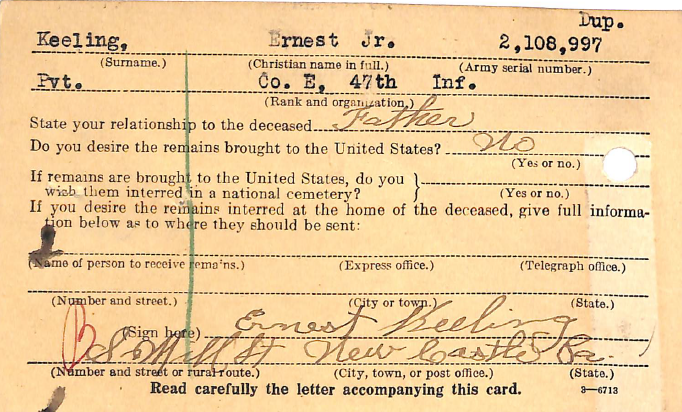 Dup.
Keeling, Ernest Jr. 2,108,997
(Surname.) (Christian name in full.) (Army serial number.)
Pvt. Co. E, 47th Inf.
(Rank and organization.)
State your relationship to the deceased Father
Do you desire the remains brought to the United States? No
(Yes or no.)
If remains are brought to the United States, do you
wish them interred in a national cemetery?
(Yes or no.)
If you desire the remains interred at the home of the deceased, give full informa-
tion below as to where they should be sent:
(Name of person to receive remains.) (Express office.) (Telegraph office.)
(Number and street.) (City or town.) (State.)
(Sign here) Ernest Keeling
S Mill St New Castle Pa.
(Number and street or rural route.) (City, town, or post office.) (State.)
Read carefully the letter accompanying this card. 3—6713